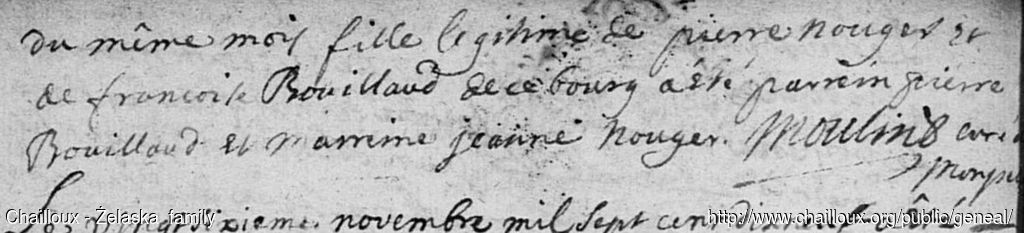 du même mois fille legitime de pierre nouger et
de francoise Bouillaud de ce bourg a été parrein pierre
Bouillaud et marreine jeanne nouger. Moulins curé
Chailloux - Żelaska family
http://www.chailloux.org/public/geneal/
novembre mil sept cent